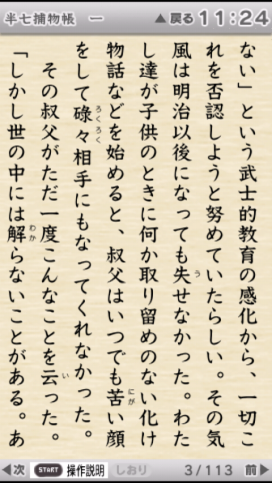 半七捕物帳 一 ▲戻る 11:24
ない」という武士的教育の感化から、一切こ
れを否認しようと努めていたらしい。その気
風は明治以後になっても失せなかった。わた
し達が子供のときに何か取り留めのない化け
物話などを始めると、叔父はいつでも苦い顔
をして碌々相手にもなってくれなかった。
その叔父がただ一度こんなことを云った。
「しかし世の中には解らないことがある。あ
◀次 START 操作説明 しおり 3/113 前▶